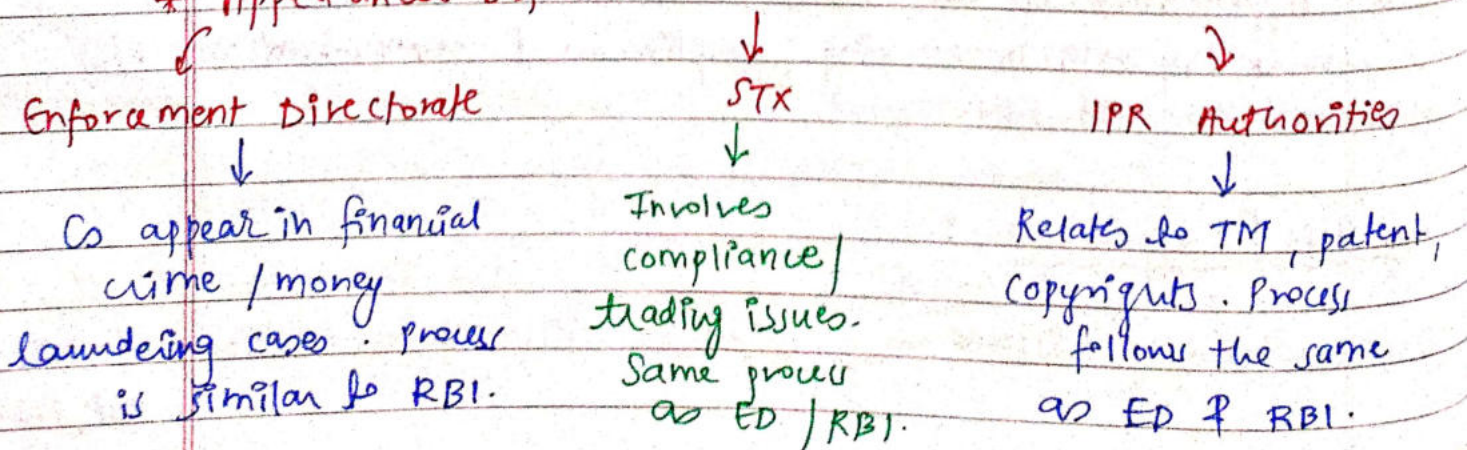 Enforcement Directorate
STX
IPR Authorities
↓
↓
↓
Cs appear in financial
crime / money
laundering cases. process
is similar to RBI.
Involves
compliance/
trading issues.
Same process
as ED / RBI.
Relates to TM, patent,
Copyrights. Process
follows the same
as ED & RBI.